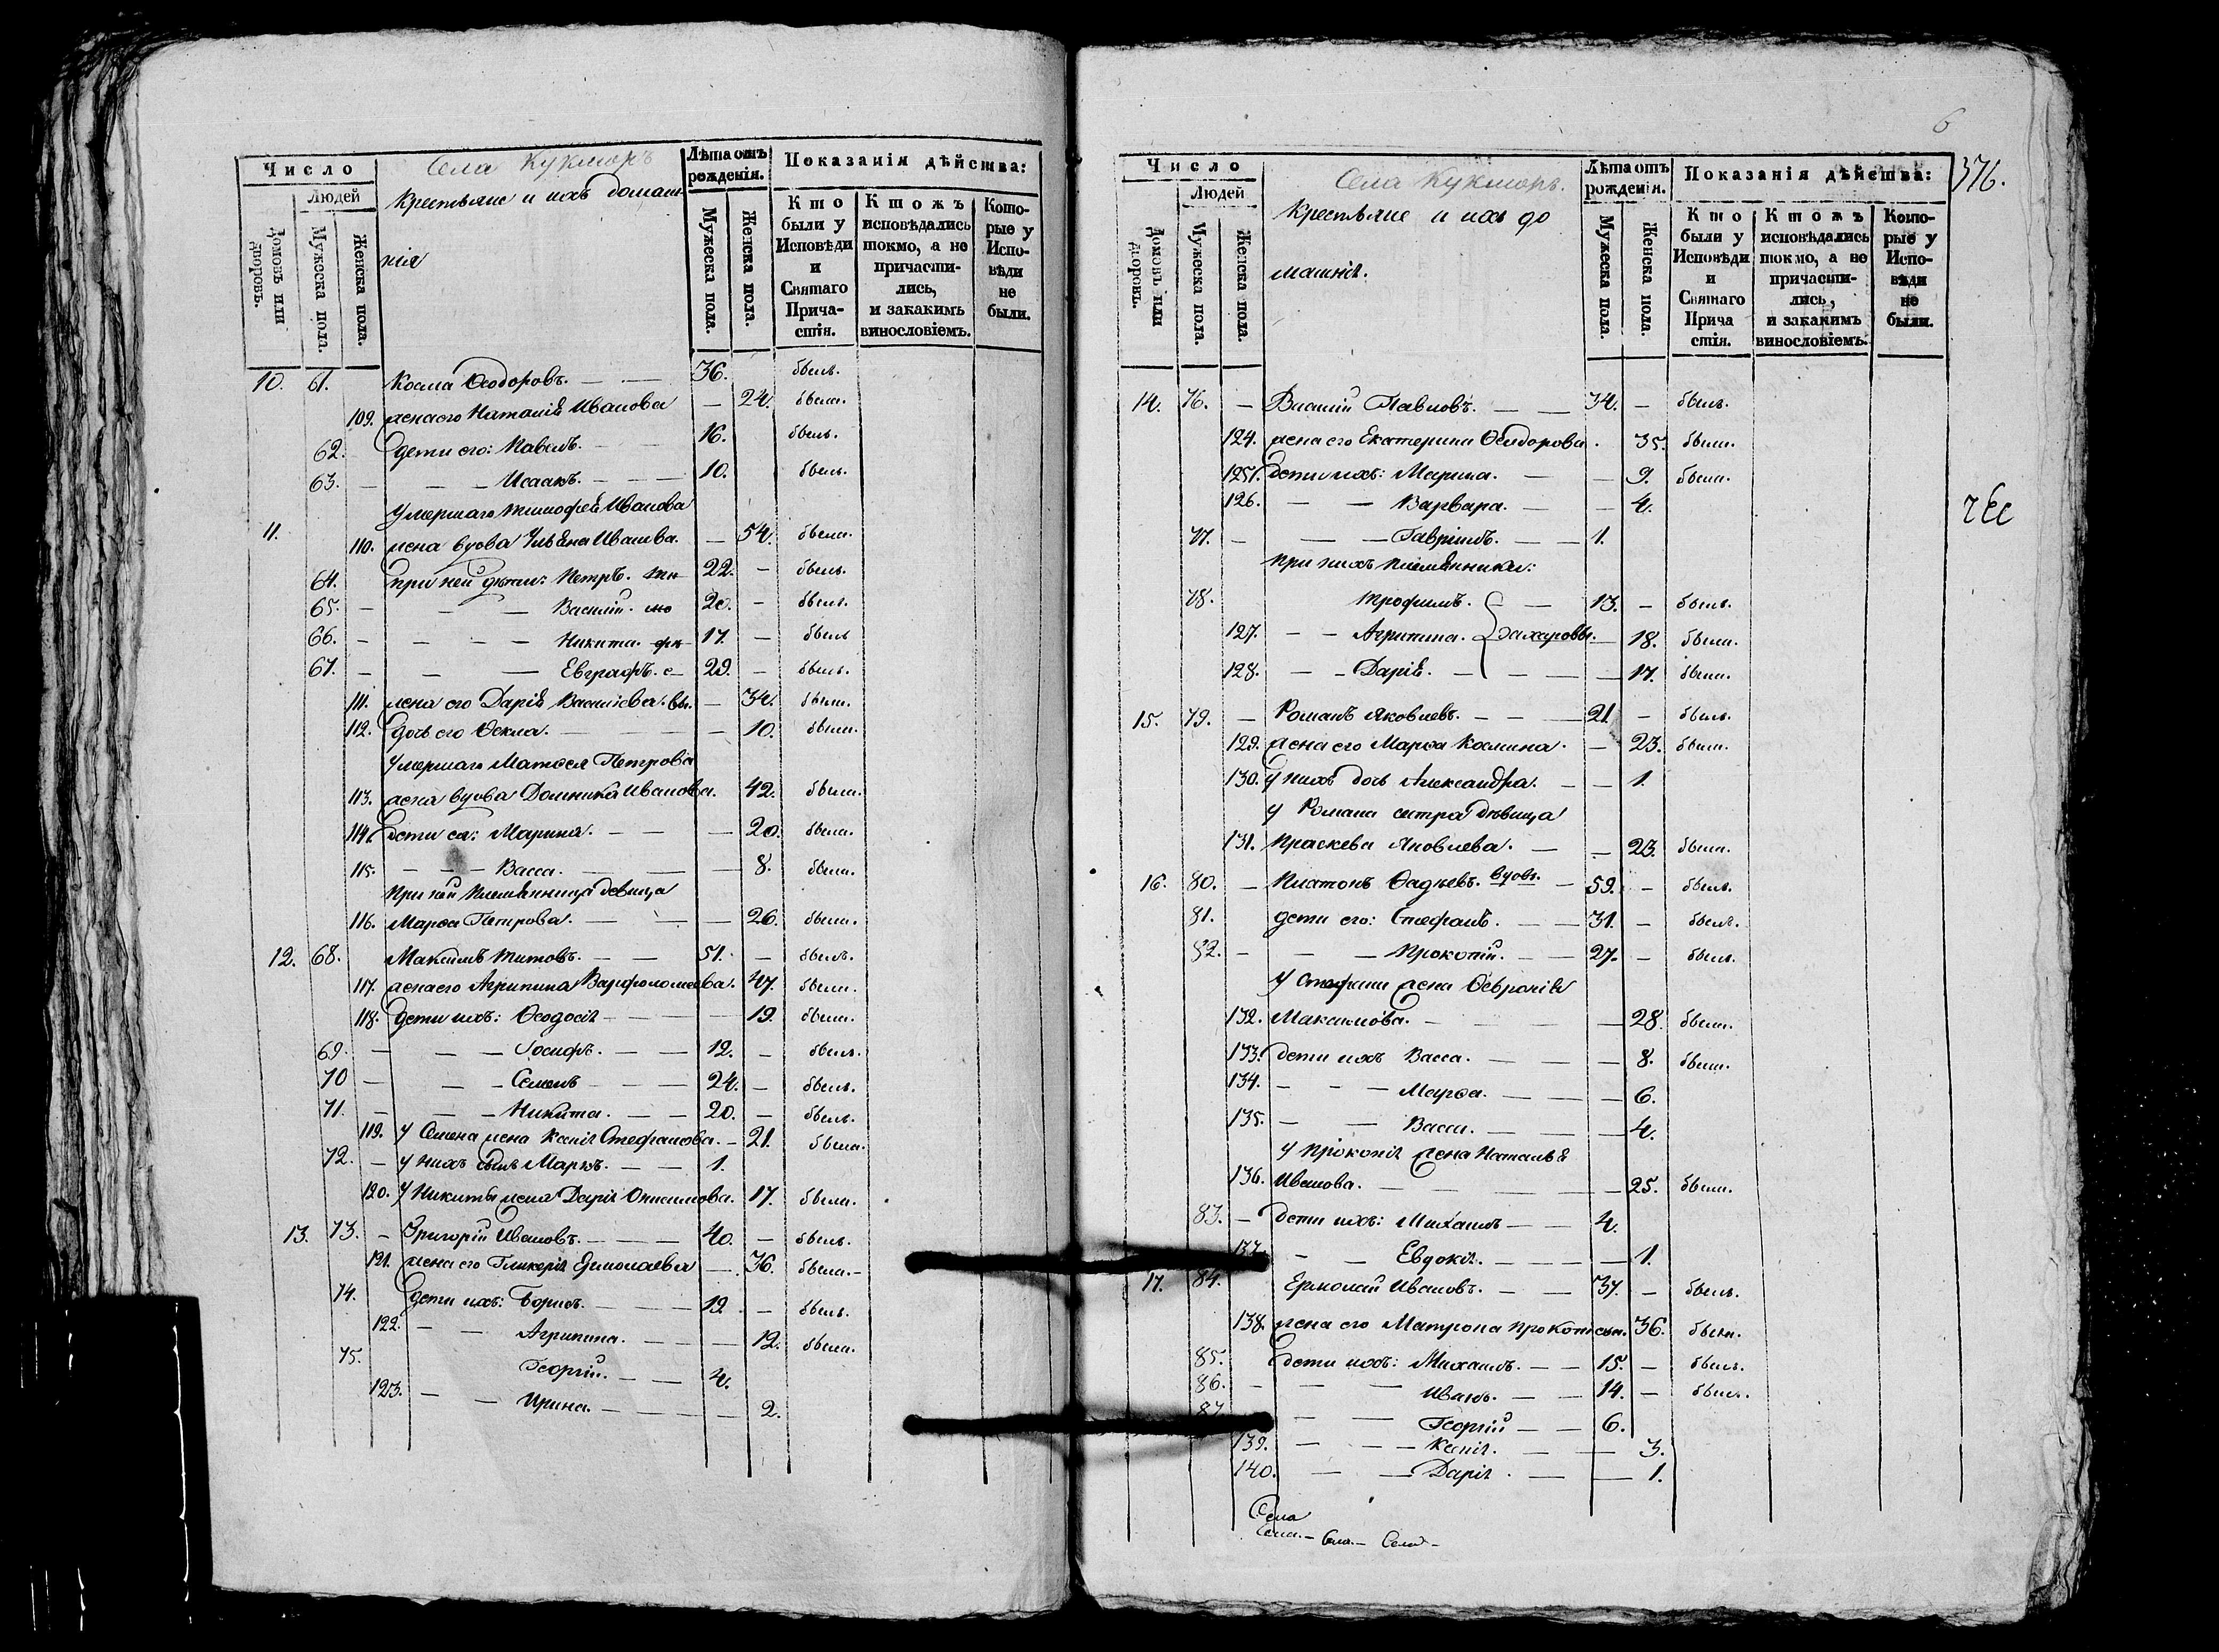 Число
Людей
Домовъ или дворовъ.
Мужеска пола.
Женска пола.
Села Кукморъ
Крестьяне и ихъ домаш-
нія
Лѣта отъ рожденія.
Мужеска пола.
Женска пола.
Показанія дѣйства:
Кто были у Исповѣди и Святаго Прича-стія.
Ктожъ исповѣдались токмо, а не причасти-лись, и закакимъ винословіемъ.
Кото-рые у Испо-вѣди не были.
10. 61. Косма Ѳеодоровъ. — — 36. былъ.
109. жена его Наталія Иванова — 24. была.
62. дети его: Павелъ. — — 16. былъ.
63. — — — Исаакъ. — — — 10. былъ.
умершаго Тимофея Иванова
11. 110. жена вдова Ульяна Иванова. — 54. была.
64. при ней дѣти: Петръ. 22. — былъ.
65. — — — Василій. 20. — былъ.
66. — — — — Никита. 17. — былъ
67. — — — Евграфъ. 29. — былъ.
111. жена его Дарія Василіева. — 34. была.
112. дочь его Ѳекла. — — — — 10. была.
умершаго Матѳея Петрова
113. жена вдова Домника Иванова. 42. была.
114. дети ея: Марина. — — — 20. была.
115. — — — Васса. — — — 8. была.
при ней племянница девица
116. Марѳа Петрова. — — — 26. была.
12. 68. Максимъ Титовъ. — — 51. — былъ.
117. жена его Агрипина Варфоломеева. 47. была.
118. дети ихъ: Ѳеодосія — — — 19. была.
69. — — — Іосифъ. — — 12. — былъ.
70 — — — Семенъ — — — 24. — былъ.
71. — — — Никита. — — 20. — былъ.
119. у Семена жена Ксенія Стефанова. — 21. была.
72. — у нихъ сынъ Маркъ. — — 1.
120. у Никиты жена Дарія Онисимова. 17. была.
13. 73. — Григорій Ивановъ. — — — 40. — былъ.
121. жена его Гликерія Ермолаева — 36. была. —
74. дети ихъ: Борисъ. — — — 19. — былъ.
122. — — Агрипина. — — — 12. была.
75. Георгій. — — 4.
123. — — Ирина. — — — — 2.
6
376.
Число
Людей
Домовъ или дворовъ.
Мужеска пола.
Женска пола.
Села Кукморъ.
Крестьяне и ихъ до
машнія.
Лѣта отъ рожденія.
Мужеска пола.
Женска пола.
Показанія дѣйства:
Кто были у Исповѣди и Святаго Прича стія.
Ктожъ исповѣдались токмо, а не причасти-лись, и закакимъ винословіемъ.
Кото-рые у Испо-вѣди не были.
14. 76. — Василій Павловъ. — — 34. — былъ.
124. жена его Екатерина Ѳеодорова. 35. была.
125. дети ихъ: Марина. — — 9. была.
126. — — Варвара. — — 4.
77. — — — Гавріилъ. — — 1.
при нихъ племянники:
78. Трофимъ. — — 13. — былъ.
127. — — Агрипина. Захаровы. — 18. была.
128. — — Дарія. — — — — 17. была.
15. 79. — Романъ Яковлевъ. — — — 21. — былъ.
129. жена его Марѳа Космина. — 23. была.
130. у нихъ дочь Александра. — — 1.
у Романа систра дѣвица
131. Праскева Яковлева. — — 23. была.
16. 80. — Платонъ Ѳадѣевъ. вдовъ. — 59. — былъ.
81. дети его: Стефанъ. — — 31. — былъ.
82. — — — Прокопій. — — 27. — былъ.
у Стефана жена Ѳевронія
132. Максимова. — — — — 28. была.
133. дети ихъ Васса. — — — 8. была.
134. — — — Марѳа. — — — 6.
135. — — Васса. — — — 4.
у Прокопія жена Наталья
136. Иванова. — — — — — 25. была.
83. — дети ихъ: Михаилъ — — 4.
137. — — Евдокія. — — — — 1.
17. 84. Ермолай Ивановъ. — — 37. — былъ.
138. жена его Матрона 36. была.
85. дети ихъ: Михаилъ. — — 15. — былъ.
86. — — — Иванъ. — — 14. — былъ.
87. — — Георгій — — 6.
139. — — — Ксенія. — — 3.
140. — — Дарія. — — 1.
Села
Села. — Села. — Села —